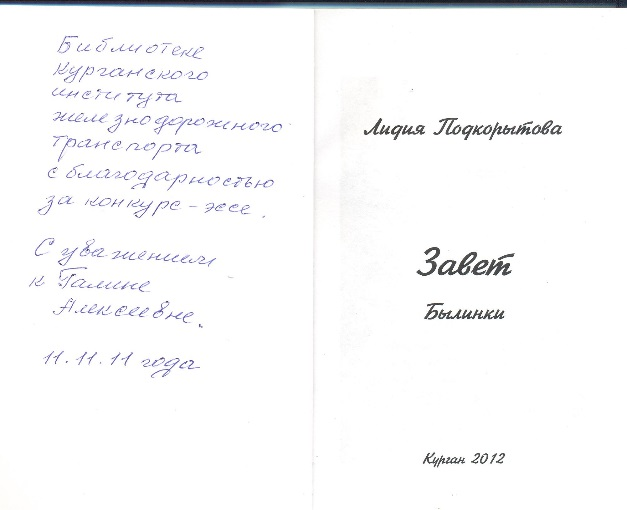 Библиотеке
Курганского
института
железнодорожного
транспорта
с благодарностью
за конкурс - эссе.
С уважением
к Галине
Алексеевне.
11.11.11 года
Лидия Подкорытова
Завет
Былинки
Курган 2012